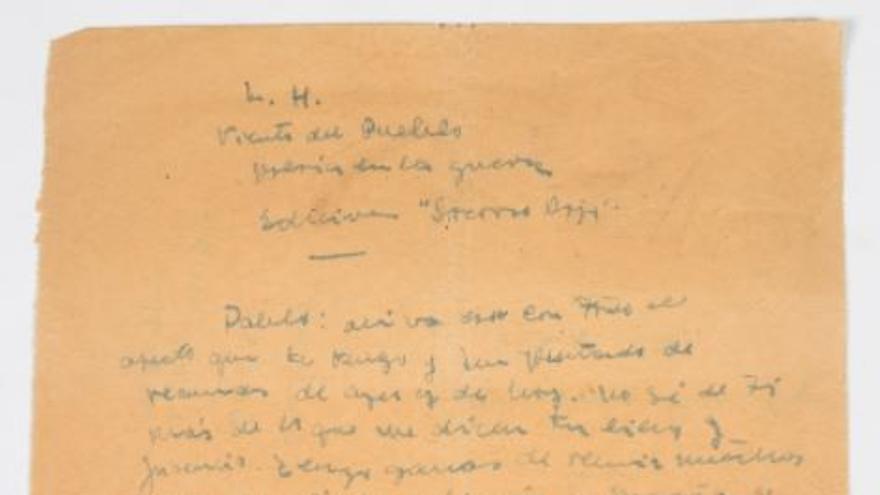 M. H.
Viento del Pueblo
poesía en la guerra
Ediciones "Socorro Rojo".
Pablo: ahí va eso con todo el
afecto que te tengo y un puñado de
de ayer y de hoy. No sé de ti
más de lo que me dicen tu libro y
Tengo ganas de nuestros